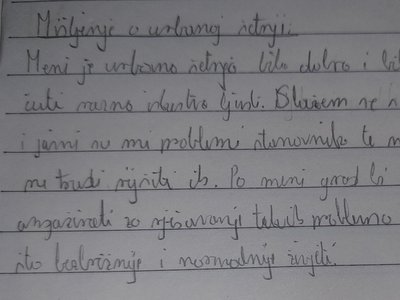 Mišljenje o urbanoj šetnji:
Meni je urbana šetnja bila dobro i bi
čuti razno iskustvo ljudi. Slažem se s
i jasni su mi problemi stanovnika te
ne trudi riješiti ih. Po meni grad bi
angažirati za rješavanje takvih problema
što bezbrižnije i normalnije živjeti.